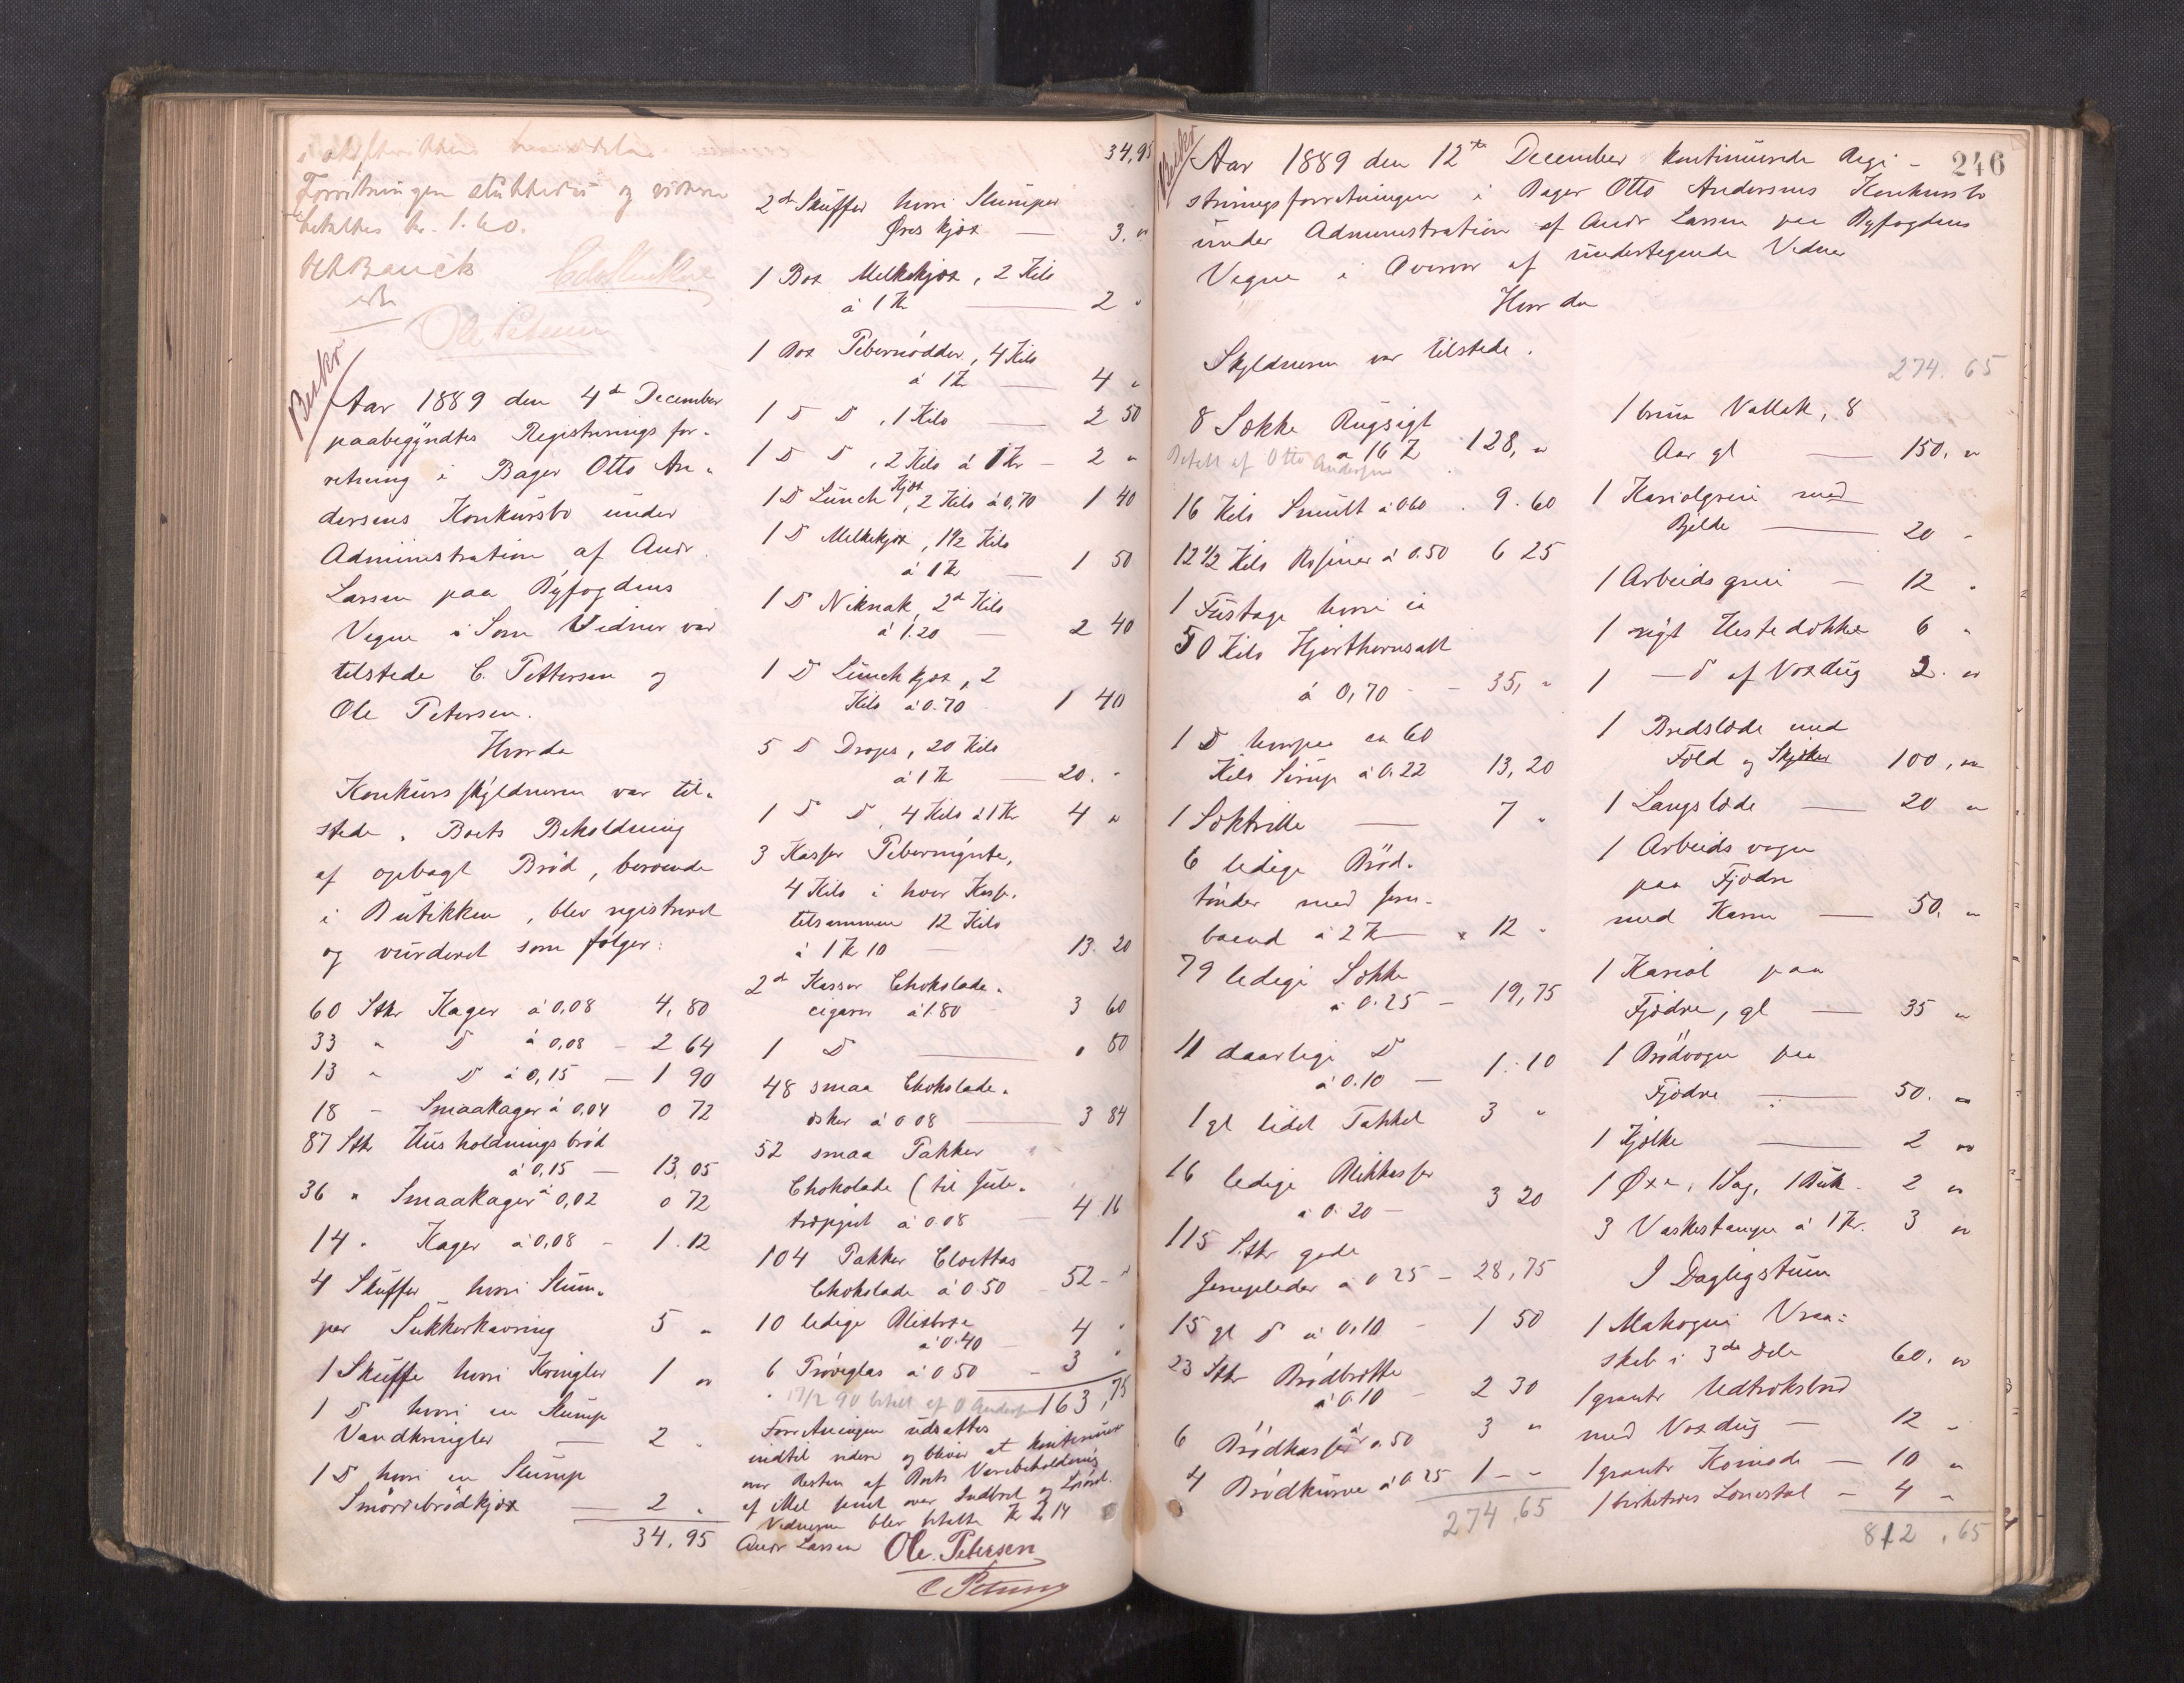 Forretningen sluttedes og vidnerne
betaltes kr. 1.60.
Ole Petersen
Aar 1889 den 4de December
paabegyndtes Registrerings for-
retning i Bager Otto An-
dersens Konkursbo under
Administration af Andr.
Larsen paa Byfogdens
Vegne i Som Vidner var
tilstede C. Pettersen og
Ole Petersen.
Hvorda
Konkursskyldneren var til-
stede. Boets Beholdning
af opbagt Brød, beroende
i Butikken, blev registreret
og vurderet som følger:
60 Stkr Kager à 0,08 4,80
33 " D à 0,08 - 2 64
13 " D à 0,15 - 1 90
18 - Smaakager à 0,04 0 72
87 Stkr Husholdningsbrød
à 0,15 - 13,05
36 " Smaakager à 0,02 0 72
14 " Kager à 0,08 - 1.12
4 Skuffer hvori Slum-
per Sukkerkavring 5 "
1 Skuffe hvori Kringler 1 "
1 D hvori en Slump
Vandkringler - 2 "
1 D hvori en Slump
Smørrebrødkjæx - 2 "
34,95
34,95
2de Skuffer hvori Slumper
Øreskjæx - 3, "
1 Box Melkekjæx, 2 Kilo
à 1 Kr - 2 "
1 Box Pebernødder, 4 Kilo
à 1 Kr - 4 "
1 D D, 1 Kilo - 2 50
1 D D, 2 Kilo à 1 Kr - 2 "
1 D Lunch Kjæx, 2 Kilo à 0,70 1 40
1 D Melkekjæx, 1 1/2 Kilo
à 1 Kr - 1 50
1 D Niknak, 2de Kilo
à 1.20 - 2 40
1 D Lunchkjæx, 2
Kilo à 0.70 1 40
5 D Drops, 20 Kilo
à 1 Kr - 20. "
1 D D 4 Kilo à 1 Kr 4 "
3 Kasser Pebermynte,
4 Kilo i hver Kasse,
tilsammen 12 Kilo
à 1 Kr 10 13.20
2de Kasser Chokolade-
cigarer à 1.80 3 60
1 D - " 80
48 smaa Chokolade-
æsker à 0 08 - 3 84
52 smaa Pakker
Chokolade (til Jule-
træpynt à 0.08 - 4.16
104 Pakker Cloettas
Chokolade à 0.50 52 - "
10 ledige Blikboxe
à 0.40 4 "
6 Prøveglas à 0 50 - 3 "
17/2 90 betalt af O Andersen 163,75
Forretningen udsattes
indtil videre og bliver at kontinuere
over Resten af Boets Varebeholdning
af Mel samt over Indbo og Løsøre.
Vidnerne blev betalte Kr 2,14
Andr Larsen Ole. Petersen
C Petersen
246
Aar 1889 den 12te December kontinuerede Regi-
streringsforretningen i Bager Otto Andersens Konkursbo
under Administration af Andr Larsen paa Byfogdens
Vegne i Overvær af undertegnede Vidner
Hvorda
Skyldneren var tilstede.
8 Sække Rugsigt
à 16 Kr 128, "
Betalt af Otto Andersen
16 Kilo Smult à 0 60 . 9.60
12 1/2 Kilo Rosiner à 0.50 6 25
1 Fustage hvori ca
50 Kilo Hjorthornsalt
à 0,70 - - 35, "
1 D hvorpaa ca 60
Kilo Sirup à 0.22 13,20
1 Sæktrille - 7 "
6 ledige Brød-
tønder med Jern-
baand à 2 Kr " 12 "
79 ledige Sække
à 0.25 - 19,75
11 daarlige D
à 0.10 - 1.10
1 gl lidet Takkel 3 "
16 ledige Blikkasser
à 0.20 - 3 20
115 Stkr gode
Jernplader à 0 25 - 28,75
15 gl D à 0,10 - 1 50
23 Stkr Brødbrette
à 0.10 - 2 30
6 Brødkasser à 0.50 3 "
4 Brødkurve à 0.25 1 - "
274,65
274.65
1 brun Vallak, 8
Aar gl - 150. "
1 Kariolgreie med
Bjelde - 20 "
1 Arbeidsgreie - 12 "
1 nyt Hestedækken 6 "
1 - D af Voxdug 2. "
1 Bredslæde med
Fæld og 100, "
1 Langslæde - 20 "
1 Arbeidsvogn
paa Fjædre
med Karm - 50. "
1 Kariol paa
Fjædre, gl - 35 "
1 Brødvogn paa
Fjædre - 50. "
1 Kjælke - 2 "
1 Øxe, 1 Sag, 1 Buk - 2 "
3 Vaskestamper à 1 Kr. 3 "
I Dagligstuen
1 Mahogni Vraa-
skab i 3de Dele 60. "
1 grantr Udtræksbord
med Voxdug - 12 "
1 grantr Komode - 10 "
1 birketræs Lænestol - 4 "
812,65